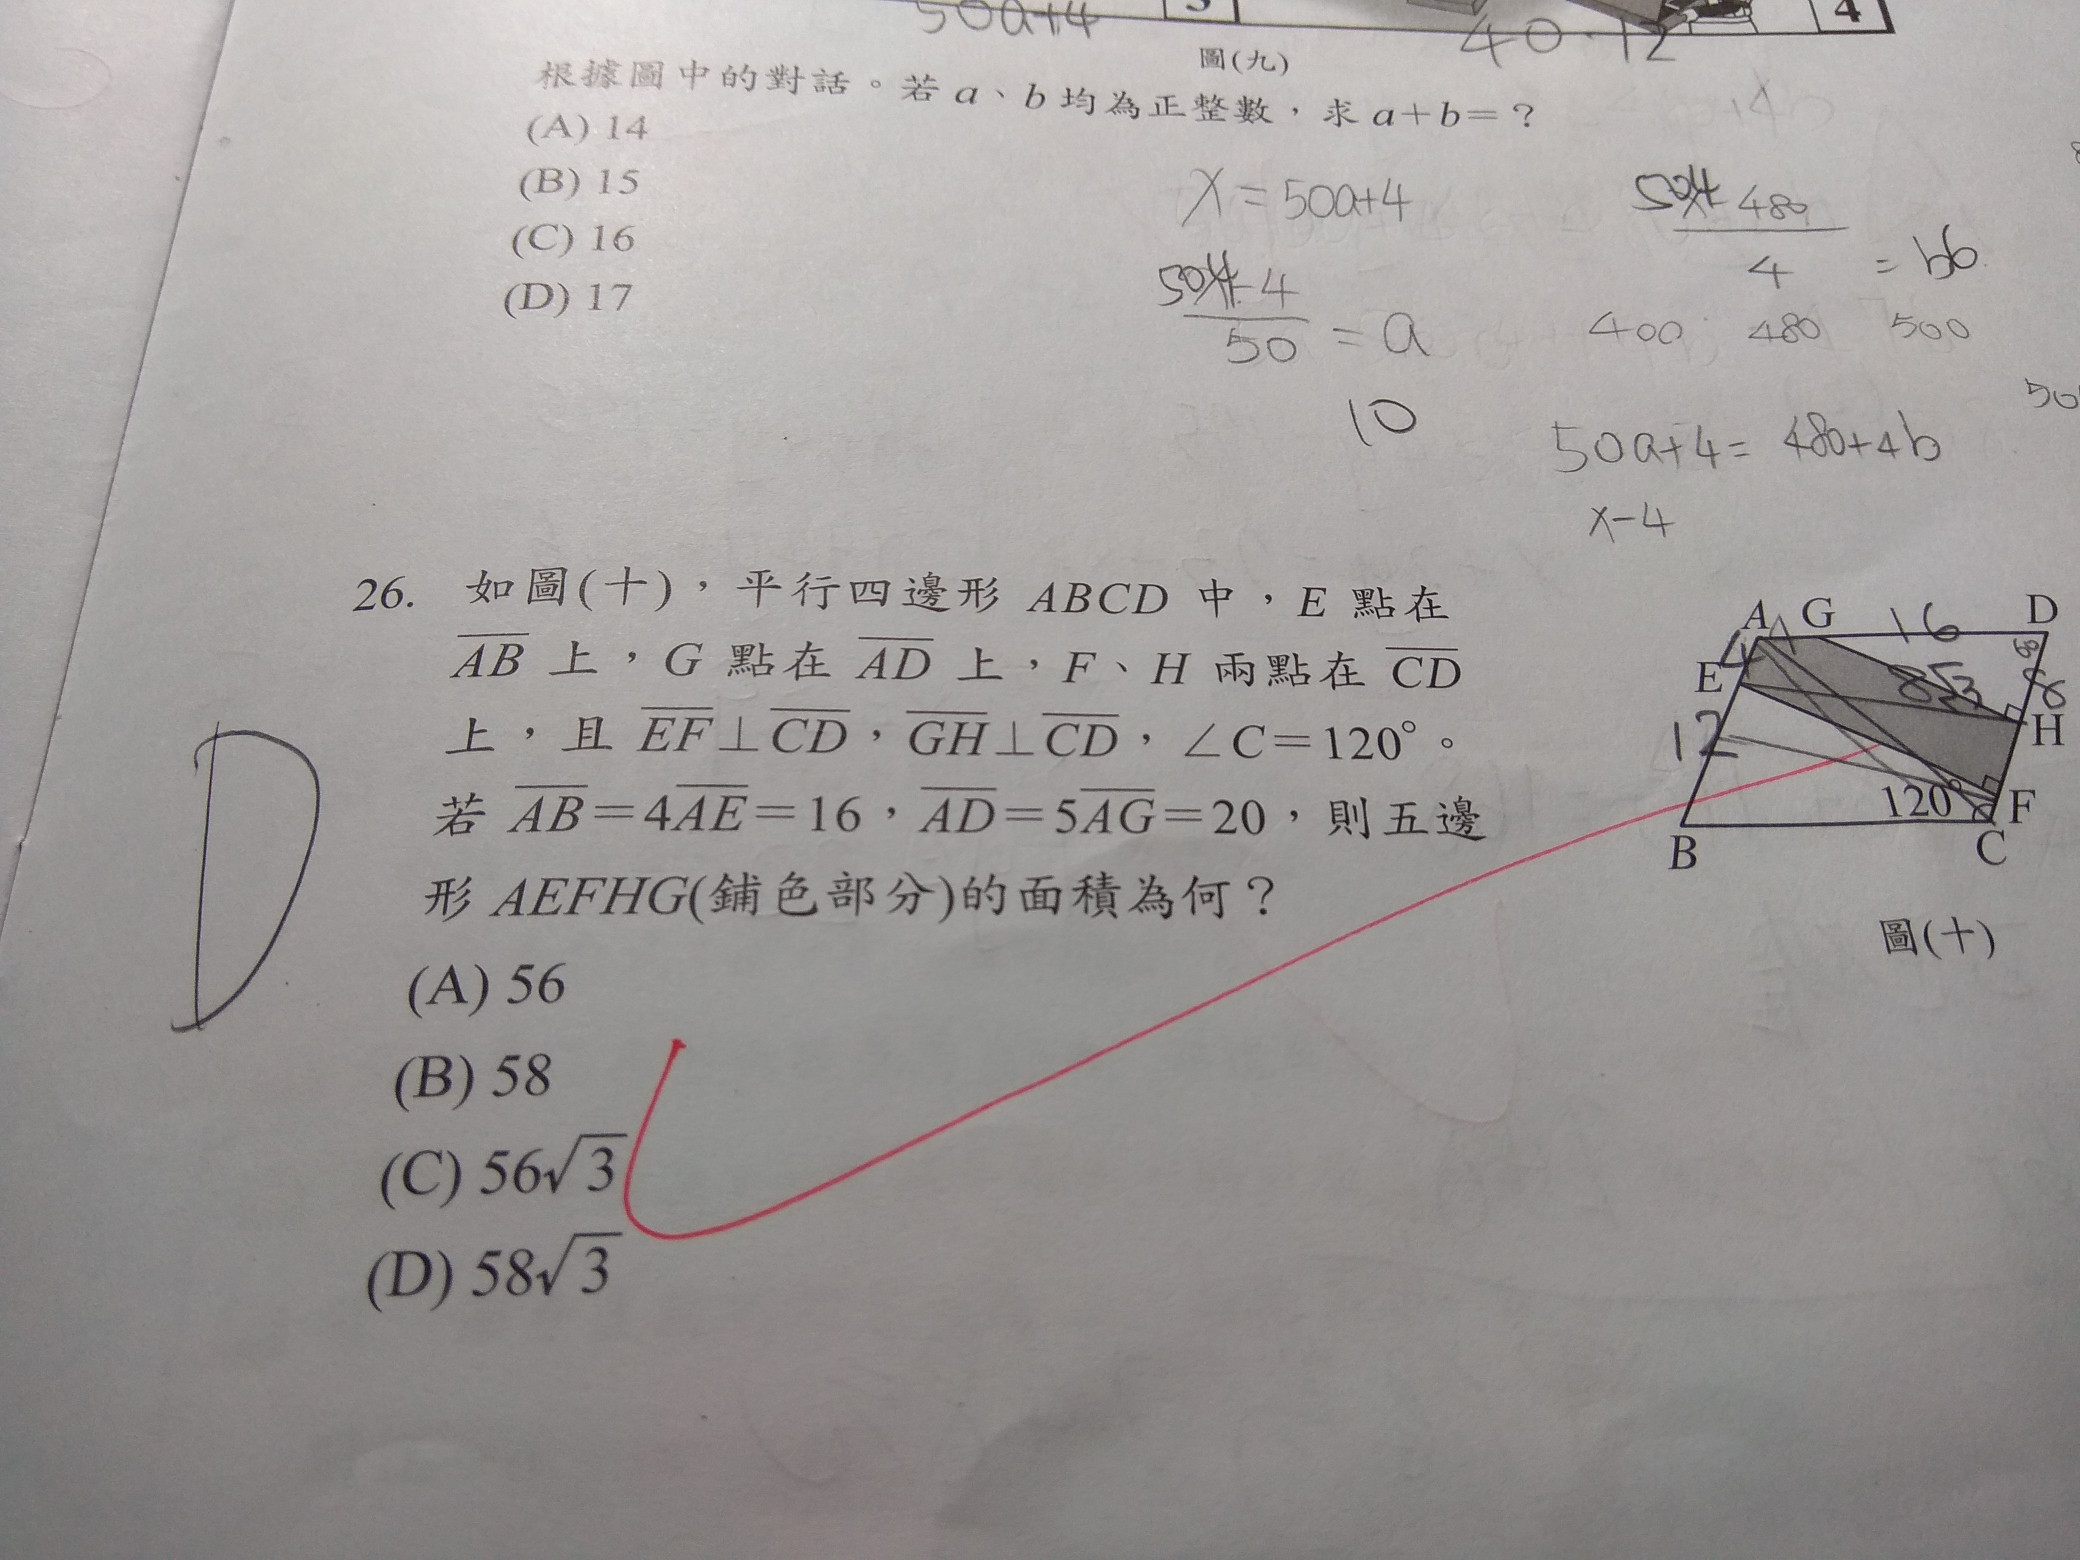 50a+4
3
40.12
4
圖(九)
根據圖中的對話。若 a、b 均為正整數，求 a+b=？
(A) 14
(B) 15
(C) 16
(D) 17
x=50a+4
480
4
50
= a
400 480 500
10
50a+4= 480+4b
x-4
26. 如圖(十)，平行四邊形 ABCD 中，E 點在
AB 上，G 點在 AD 上，F、H 兩點在 CD
上，且 EF⊥CD，GH⊥CD，∠C=120°。
若 AB=4AE=16，AD=5AG=20，則五邊
形 AEFHG(鋪色部分)的面積為何？
(A) 56
(B) 58
(C) 56√3
(D) 58√3
D
A G 16 D
4 8
E 8√3 H
12
120° F
B C
圖(十)